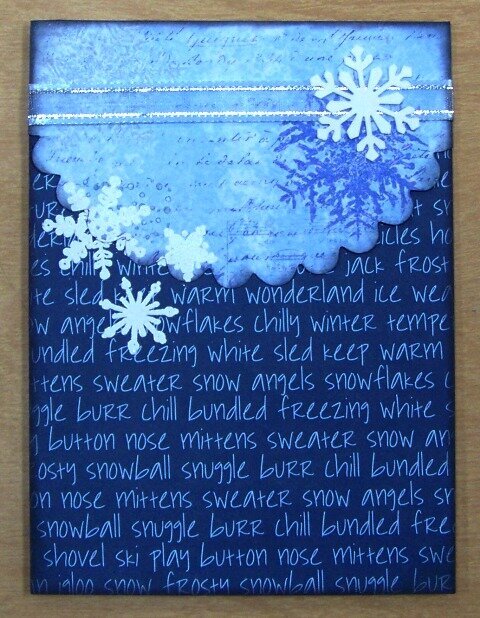 icles ho
jack frost
te sled warm wonderland ice wea
w ange owflakes chilly winter tempe
bundled freezing white sled keep warm
ttens sweater snow angels snowflakes c
ggle burr chill bundled freezing white s
y button nose mittens sweater snow an
osty snowball snuggle burr chill bundled
on nose mittens sweater snow angels sn
snowball snuggle burr chill bundled free
shovel ski play button nose mittens swe
n igloo snow frosty snowball snuggle burr